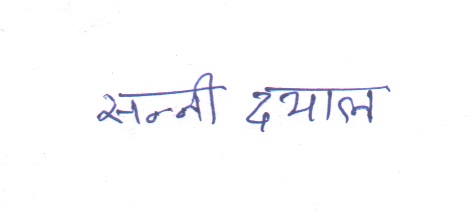 सन्नी दयाल